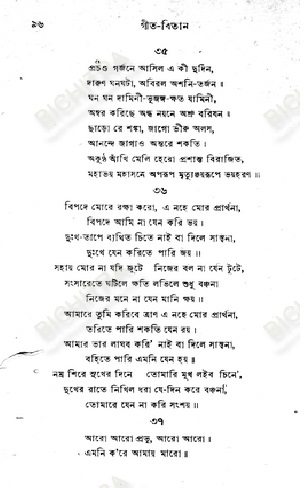 ৯৬
গীত-বিতান
৩৫
প্রচণ্ড গর্জনে আসিল এ কী দুর্দিন,
দারুণ ঘনঘটা, অবিরল অশনি-তর্জন॥
ঘন ঘন দামিনী-ভুজঙ্গ-ক্ষত যামিনী,
অম্বর করিছে অন্ধ নয়নে অশ্রু বরিষন॥
ছাড়ো রে শঙ্কা, জাগো ভীরু অলস,
আনন্দে জাগাও অন্তরে শকতি।
অকুণ্ঠ আঁখি মেলি হেরো প্রশান্ত বিরাজিত,
মহাভয় মহাসনে অপরূপ মৃত্যুঞ্জয়রূপে ভয়হরণ॥
৩৬
বিপদে মোরে রক্ষা করো, এ নহে মোর প্রার্থনা,
বিপদে আমি না যেন করি ভয়॥
দুঃখ-তাপে ব্যথিত চিতে নাই বা দিলে সান্ত্বনা,
দুঃখে যেন করিতে পারি জয়॥
সহায় মোর না যদি জুটে নিজের বল না যেন টুটে,
সংসারেতে ঘটিলে ক্ষতি লভিলে শুধু বঞ্চনা
নিজের মনে না যেন মানি ক্ষয়॥
আমারে তুমি করিবে ত্রাণ এ নহে মোর প্রার্থনা,
তরিতে পারি শকতি যেন রয়।
আমার ভার লাঘব করি' নাই বা দিলে সান্ত্বনা,
বহিতে পারি এমনি যেন হয়॥
নম্র শিরে সুখের দিনে তোমারি মুখ লইব চিনে',
দুখের রাতে নিখিল ধরা যে-দিন করে বঞ্চনা,
তোমারে যেন না করি সংশয়॥
৩৭
আরো আরো প্রভু, আরো আরো॥
এমনি ক'রে আমায় মারো॥
BICHITRA